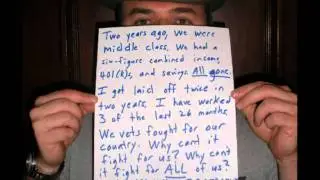 Two years ago, we were
middle class. We had a
six-figure combined income,
401(k)s, and savings. All gone.
I got laid off twice in
two years. I have worked
3 of the last 26 months.
We vets fought for our
country. Why can't it
fight for us? Why can't
it fight for ALL of us?